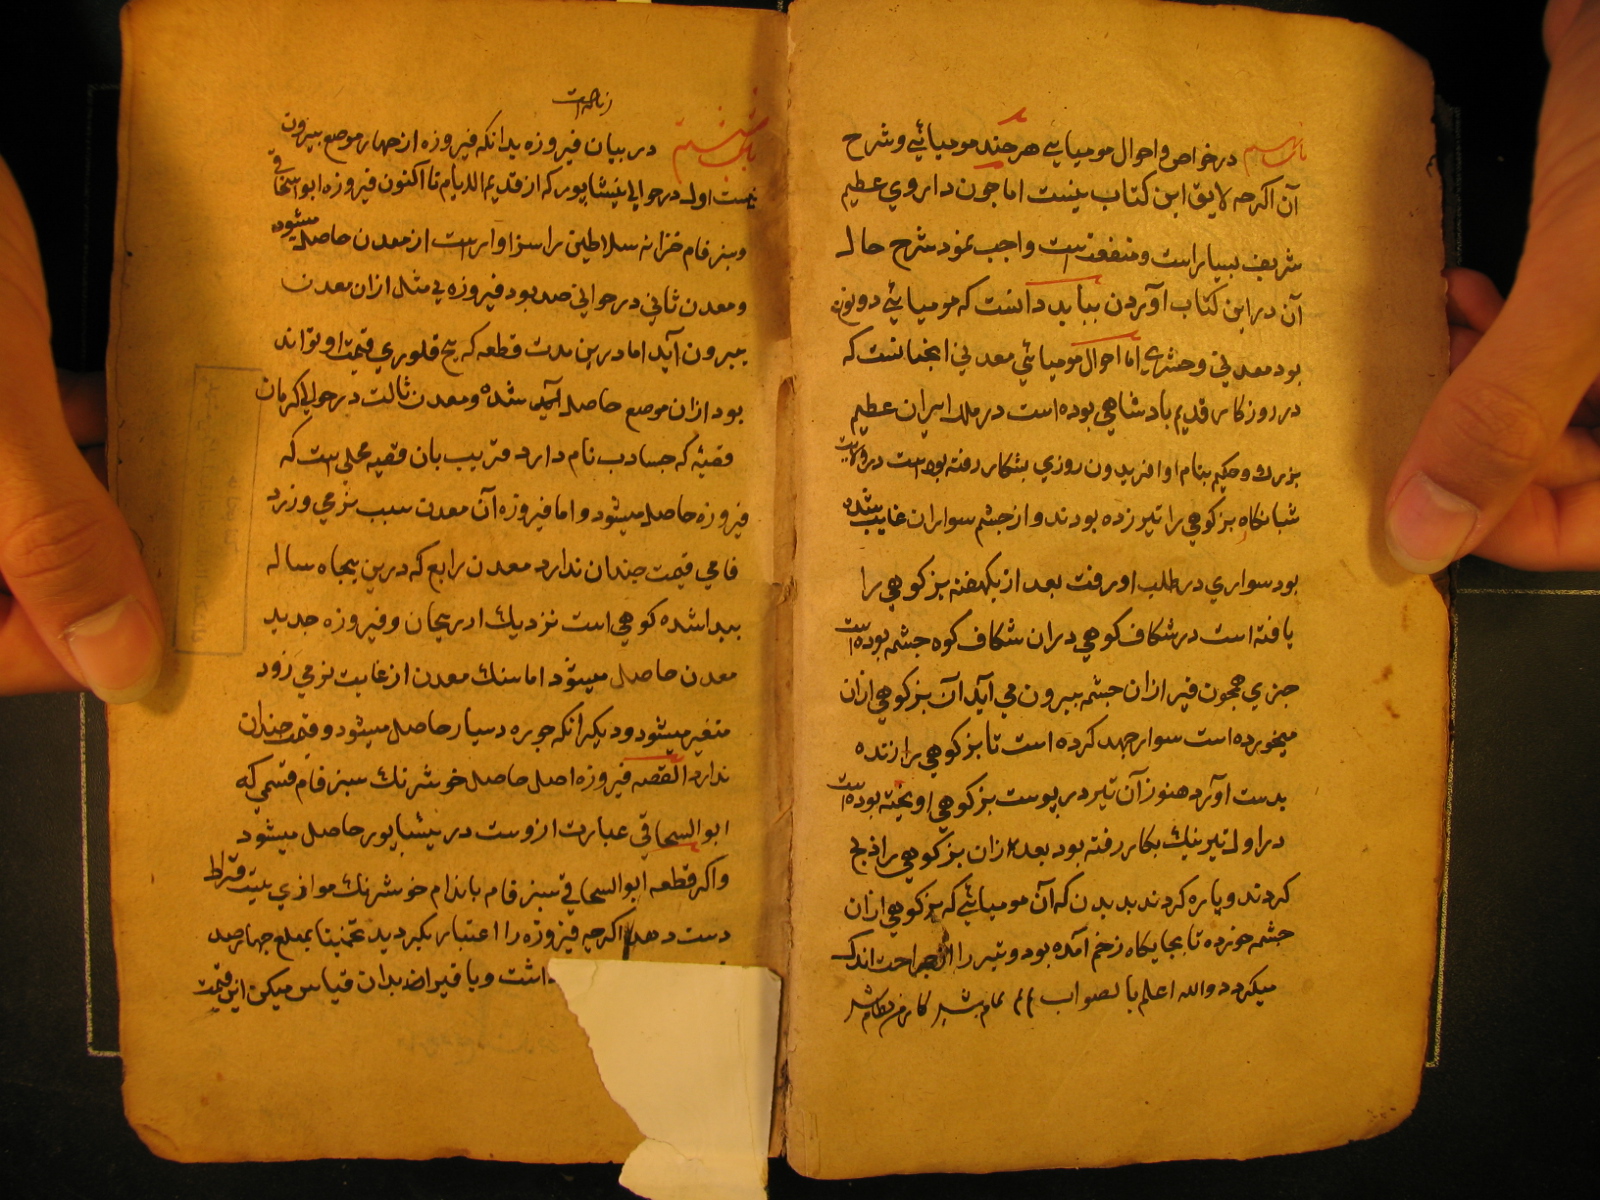 باب سیم در خواص و احوال مومیایی هر چند مومیائی و شرح
آن اکرچه لایق این کتاب نیست اما چون داروی عظیم
شریف بسیار است و منفعتست واجب نمود شرح حال
آن در این کتاب آوردن بباید دانست که مومیائی دو نوع
بود معدنی و حشری اما احوال مومیائی معدنی انچنانست که
در روزکار قدیم بادشاهی بوده است در ملک ایران عظیم
بزرک و حکیم بنام او افریدون روزی بشکار رفته بود است در ولایت
شبانکاه بز کوهی را تیر زده بودند و از چشم سواران غایب شده
بود سواری در طلب او رفت بعد از یکهفته بز کوهی را
یافته است در شکاف کوهی در ان شکاف کوه چشمه بوده است
چیزی همچون قیر از ان چشمه بیرون می آید آن بز کوهی از ان
میخورده است سوار جهد کرده است تا بز کوهی را زنده
بدست آورد هنوز آن تیر در پوست بز کوهی اویخته بوده است
در اول تیر نیک بکار رفته بود بعد ازان بز کوهی را ذبح
کردند و پاره کردند بدیدن که آن مومیائی که بز کوهی ازان
چشمه خورده تا بجایکاه زخم آمده بود و تیر را از جراحت اندک
میکردد والله اعلم بالصواب تمام شد کار من نظام شد
زناصر است
باب در بیان فیروزه بدانکه فیروزه از چهار موضع بیرون
نیست اول در حوالی نیشاپور که از قدیم الدیام تا اکنون فیروزه ابو اسحاقی
و سبز فام خزانه سلاطین را سزاوار است از معدن حاصل میشود
و معدن ثانی در حوالی صد بود فیروزه بی مثل ازان معدن
بیرون آید اما درین مدت قطعه که هیچ فلوری قیمت او تواند
بود ازان موضع حاصل آمد شده و معدن ثالت در حوالی کرمان
قصیه که جسادب نام دارد قریب بان قصیه محلی است که
فیروزه حاصل میشود و اما فیروزه آن معدن سبب نرمی و زرد
فامی قیمت چندان ندارد معدن رابع که درین پنجاه ساله
پیدا شده کوهی است نزدیک ادریجان و فیروزه جدید
معدن حاصل میشود اما سنک معدن از غایت نرمی زود
متغیر میشود و دیکر انکه جوره دسیار حاصل میشود و قیمت چندان
ندارد القصه فیروزه اصل حاصل خوشرنک سبز فام قسمی که
ابو السحاقی عبارت ازوست در نیشاپور حاصل میشود
و اکر قطعه ابو السحاقی سبز فام باندام خوشرنک موازی بیست قراط
دست دهد اکرچه فیروزه را اعتبار نکیردید تخمینا بمبلغ چهار صد
داشت و باقیرا هم بدان قیاس میکن این قیمت